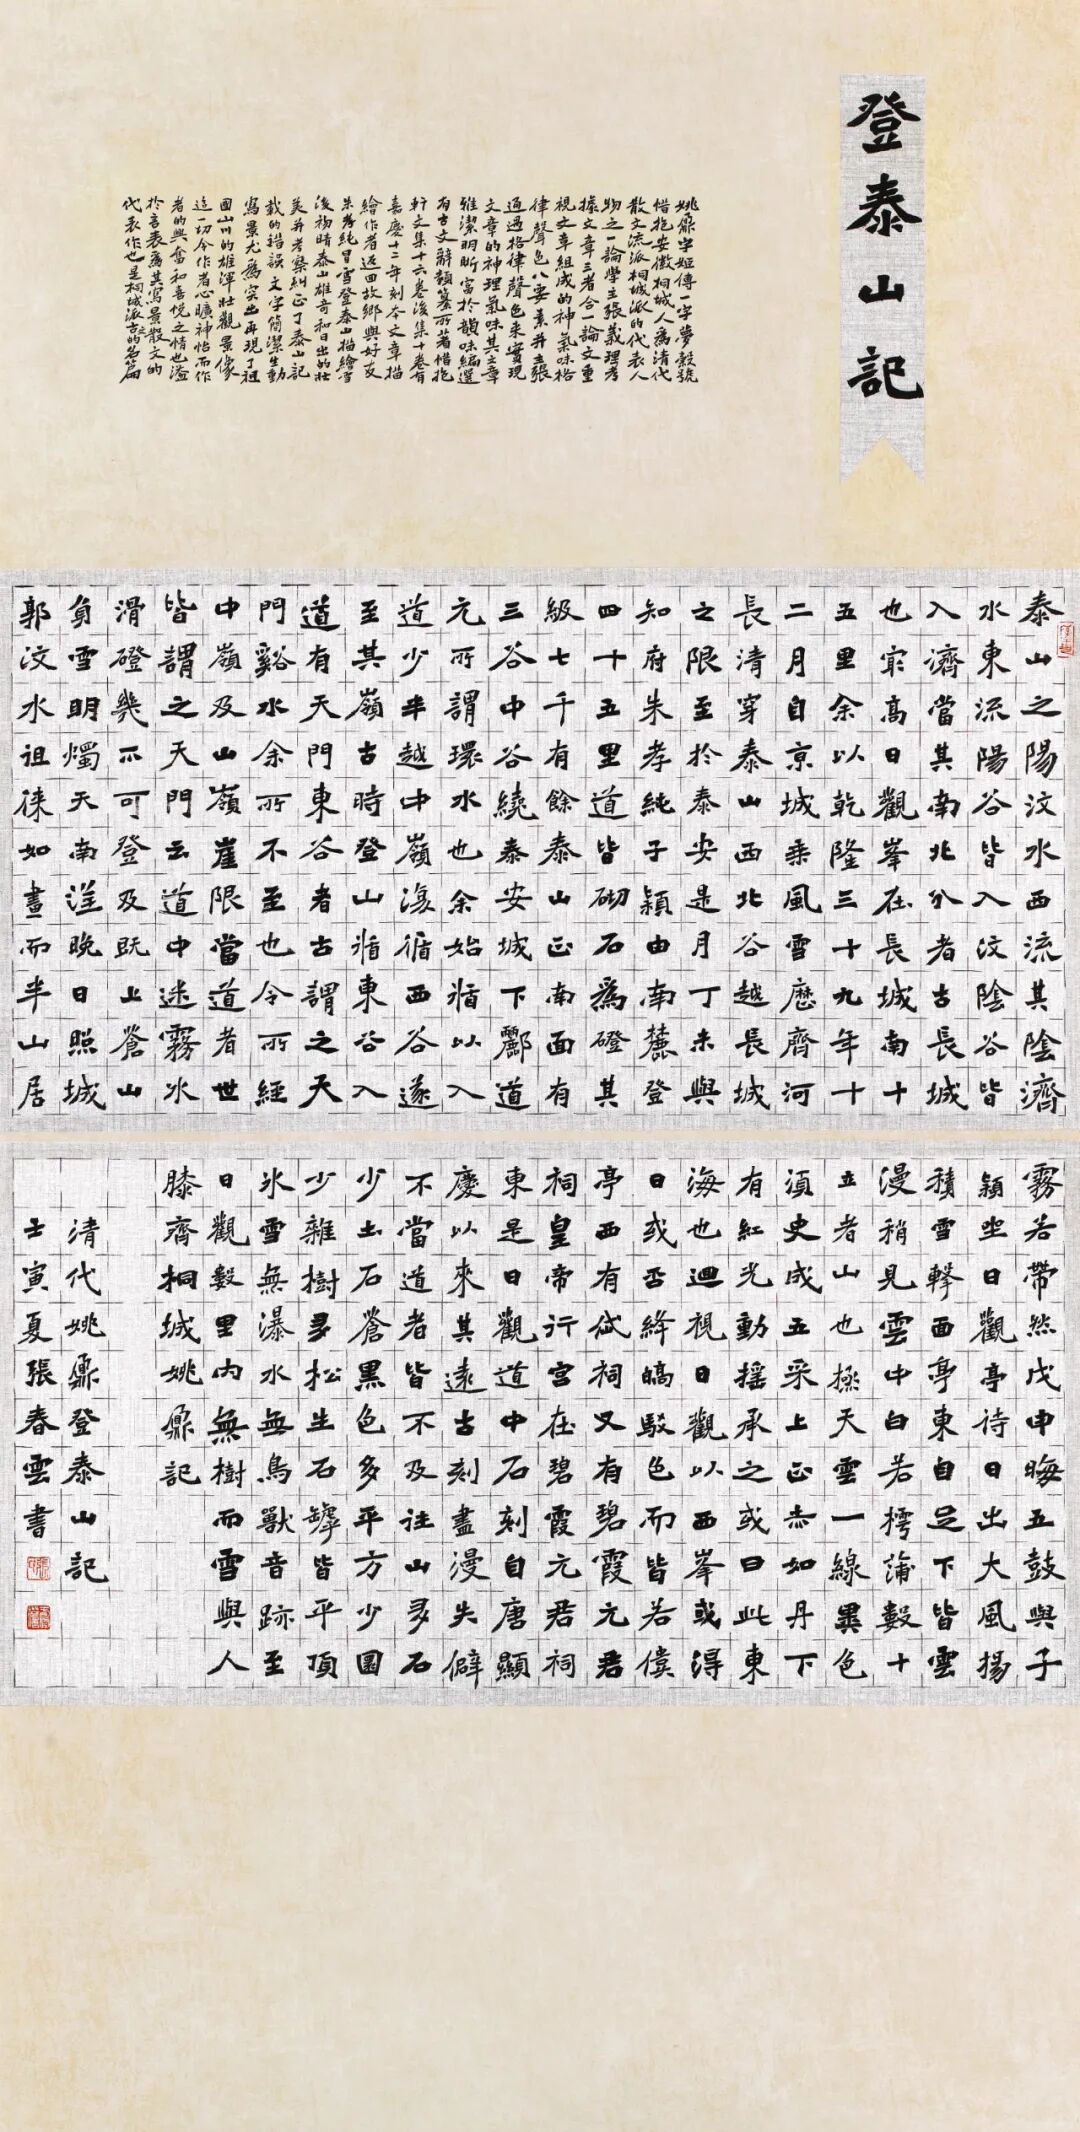 登泰山記
姚鼐字姬傳一字夢穀號
惜抱安徽桐城人為清代
散文流派桐城派的代表人
物之一論學主張義理考
據文章三者合一論文重
視文章組成的神氣味格
律聲色八要素并主張
通過格律聲色來實現
文章的神理氣味其文章
雅潔明昕富於韻味編選
有古文辭類纂所著惜抱
軒文集十六卷後集十卷有
嘉慶十二年刻本文章描
繪作者返回故鄉與好友
朱孝純冒雪登泰山描繪雪
後初晴泰山雄奇和日出的壯
美并考察糾正了泰山記
載的錯誤文字簡潔生動
寫景尤為突出再現了祖
國山川的雄渾壯觀景像
這一切令作者心曠神怡而作
者的興奮和喜悅之情也溢
於言表為其寫景散文的
代表作也是桐城派古文的名篇
泰山之陽汶水西流其陰濟
水東流陽谷皆入汶陰谷皆
入濟當其南北分者古長城
也冣高日觀峯在長城南十
五里余以乾隆三十九年十
二月自京城乘風雪歷齊河
長清穿泰山西北谷越長城
之限至於泰安是月丁未與
知府朱孝純子穎由南麓登
四十五里道皆砌石為磴其
級七千有餘泰山正南面有
三谷中谷繞泰安城下酈道
元所謂環水也余始循以入
道少半越中嶺復循西谷遂
至其嶺古時登山循東谷入
道有天門東谷者古謂之天
門谿水余所不至也今所經
中嶺及山嶺崖限當道者世
皆謂之天門云道中迷霧冰
滑磴幾不可登及既上蒼山
負雪明燭天南望晚日照城
郭汶水徂徠如畫而半山居
霧若帶然戊申晦五鼓與子
穎坐日觀亭待日出大風揚
積雪擊面亭東自足下皆雲
漫稍見雲中白若樗蒲數十
立者山也極天雲一線異色
須臾成五采上正赤如丹下
有紅光動搖承之或曰此東
海也迴視日觀以西峯或得
日或否絳皜駁色而皆若僂
亭西有岱祠又有碧霞元君
祠皇帝行宮在碧霞元君祠
東是日觀道中石刻自唐顯
慶以來其遠古刻盡漫失僻
不當道者皆不及往山多石
少土石蒼黑色多平方少圜
少雜樹多松生石罅皆平頂
冰雪無瀑水無鳥獸音跡至
日觀數里內無樹而雪與人
膝齊桐城姚鼐記
清代姚鼐登泰山記
壬寅夏張春雲書